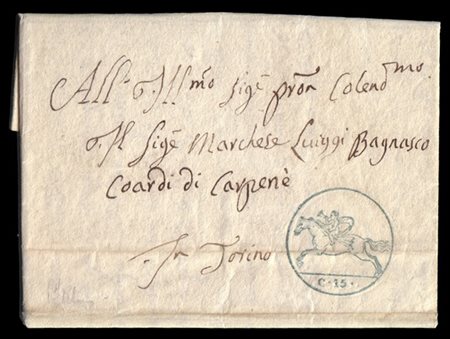 All' Ill.mo Sig.e Pron Colend.mo
Il Sig.e Marchese Luiggi Bagnasco
Coardi di Carpenè
In Torino
C. 15.